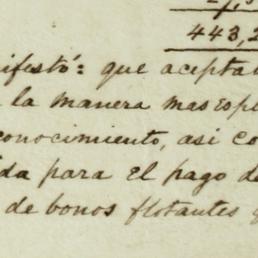 443,2
ifestó: que acepta
la manera mas esp
conocimiento, asi co
da para el pago d
de bonos flotantes